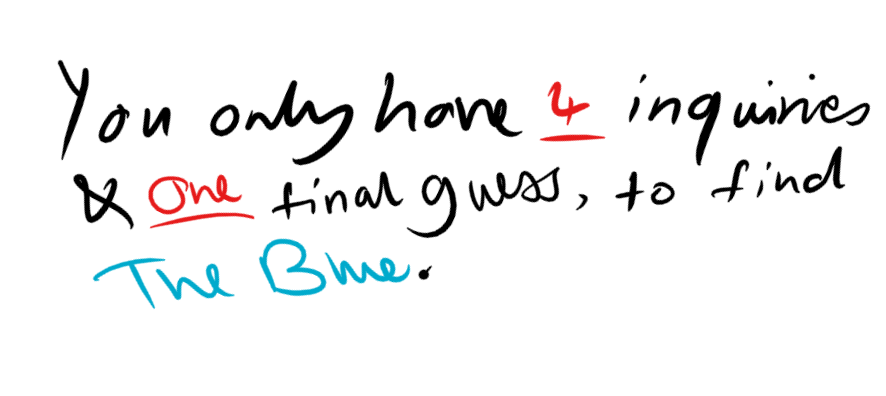 You only have 4 inquiries
& One final guess, to find
The Blue.